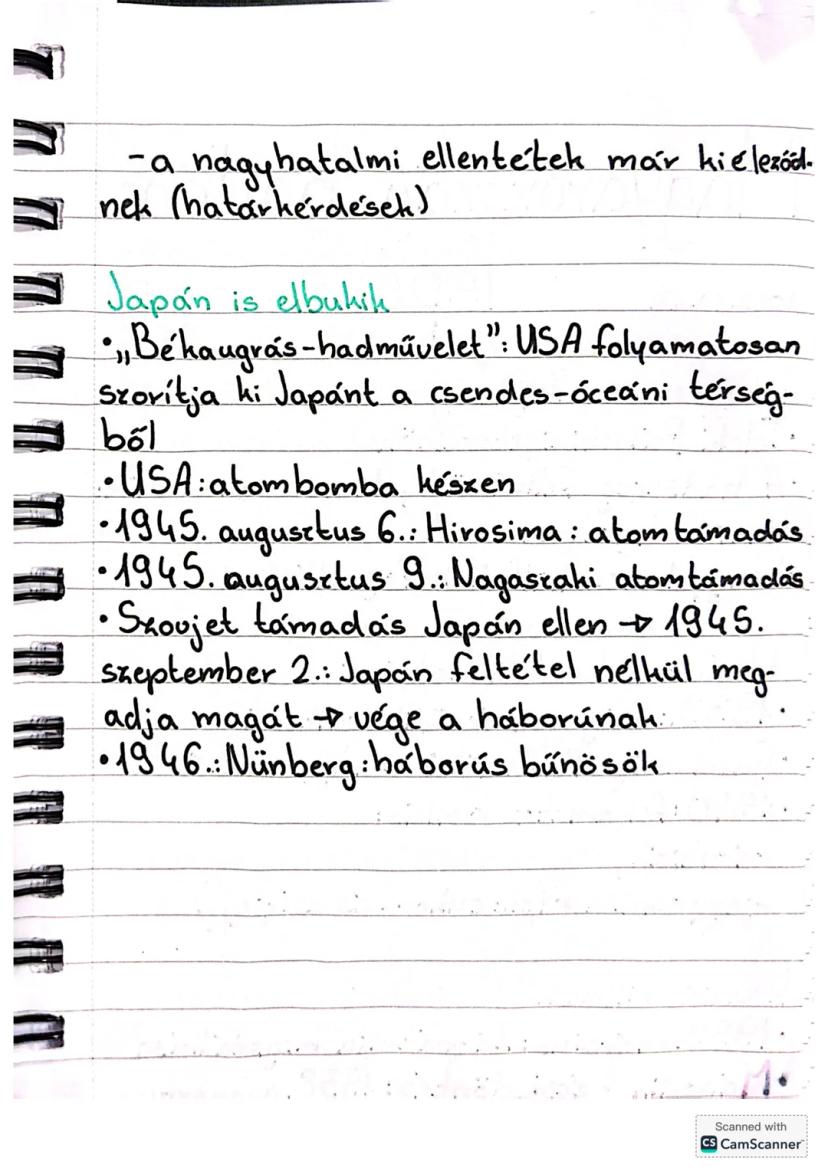 -a nagyhatalmi ellentétek már kiéleződ-
nek (határkérdések)
Japán is elbukik
•„Békaugrás-hadművelet”: USA folyamatosan
szorítja ki Japánt a csendes-óceáni térség-
ből
•USA:atombomba készen
•1945. augusztus 6.: Hirosima: atomtámadás
•1945. augusztus 9.: Nagaszaki atomtámadás
•Szovjet támadás Japán ellen → 1945.
szeptember 2.: Japán feltétel nélkül meg-
adja magát → vége a háborúnak
•1946.: Nünberg: háborús bűnösök
Scanned with
CS CamScanner